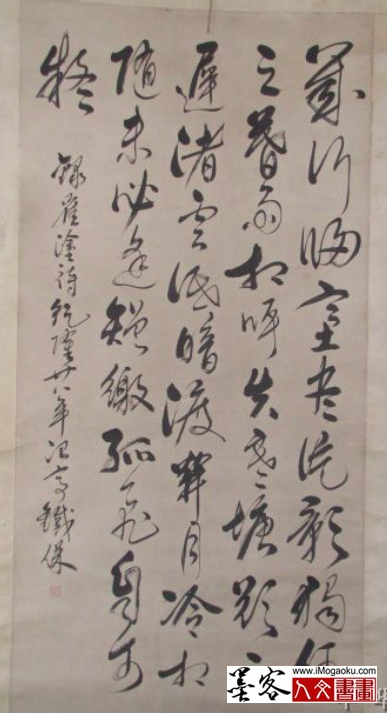 幾行歸塞盡片影獨何
之暮雨相呼失寒塘欲下
遲渚雲低暗渡關月冷相
隨未必逢矰繳孤飛自可
疑
錄崔塗詩乾隆廿八年冶亭鐵保
墨客
www.iMogaoku.com
人文書畫